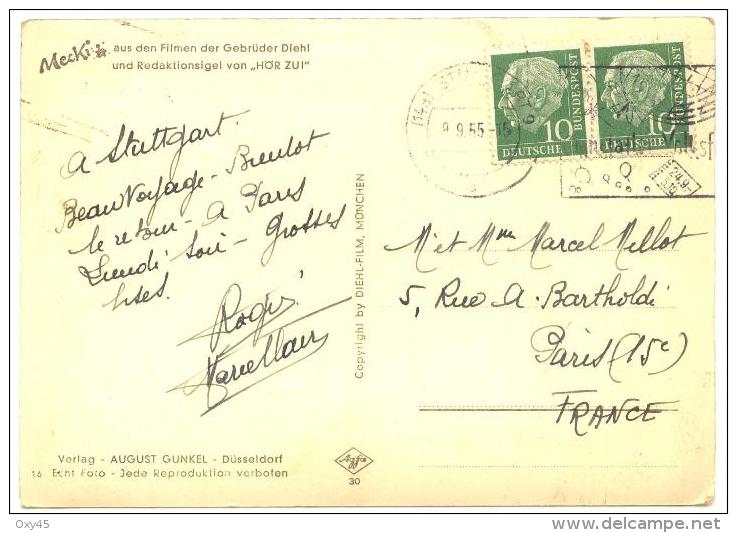 Mecki
aus den Filmen der Gebrüder Diehl
und Redaktionsigel von „HÖR ZU!"
A Stuttgart.
Beau Voyage - Bientot
le retour - A Paris
Lundi soir - Grosses
bises.
Roger
Copyright by DIEHL-FILM, MÜNCHEN
10
DEUTSCHE
BUNDESPOST
10
DEUTSCHE
BUNDESPOST
9.9.55-15
24.9-
M et Mme Marcel Mellot
5, Rue A. Bartholdi
Paris (15e)
FRANCE
Verlag - AUGUST GUNKEL - Düsseldorf
16 Echt Foto - Jede Reproduktion verboten
Agfa
30
Oxy45
www.delcampe.net